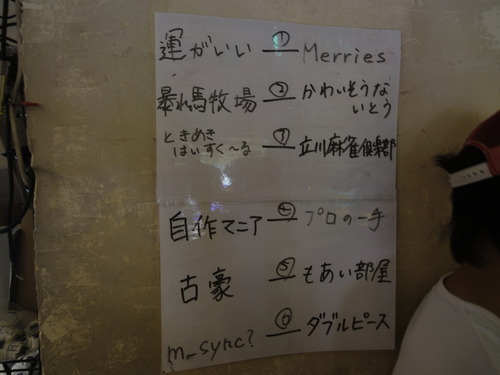 運がいい ① Merries
暴れ馬牧場 ② かわいそうな
いとう
ときめき
はいすく〜る ③ 立川麻雀倶楽部
自作マニア ④ プロの一手
古豪 ⑤ もあい部屋
m_sync? ⑥ ダブルピース